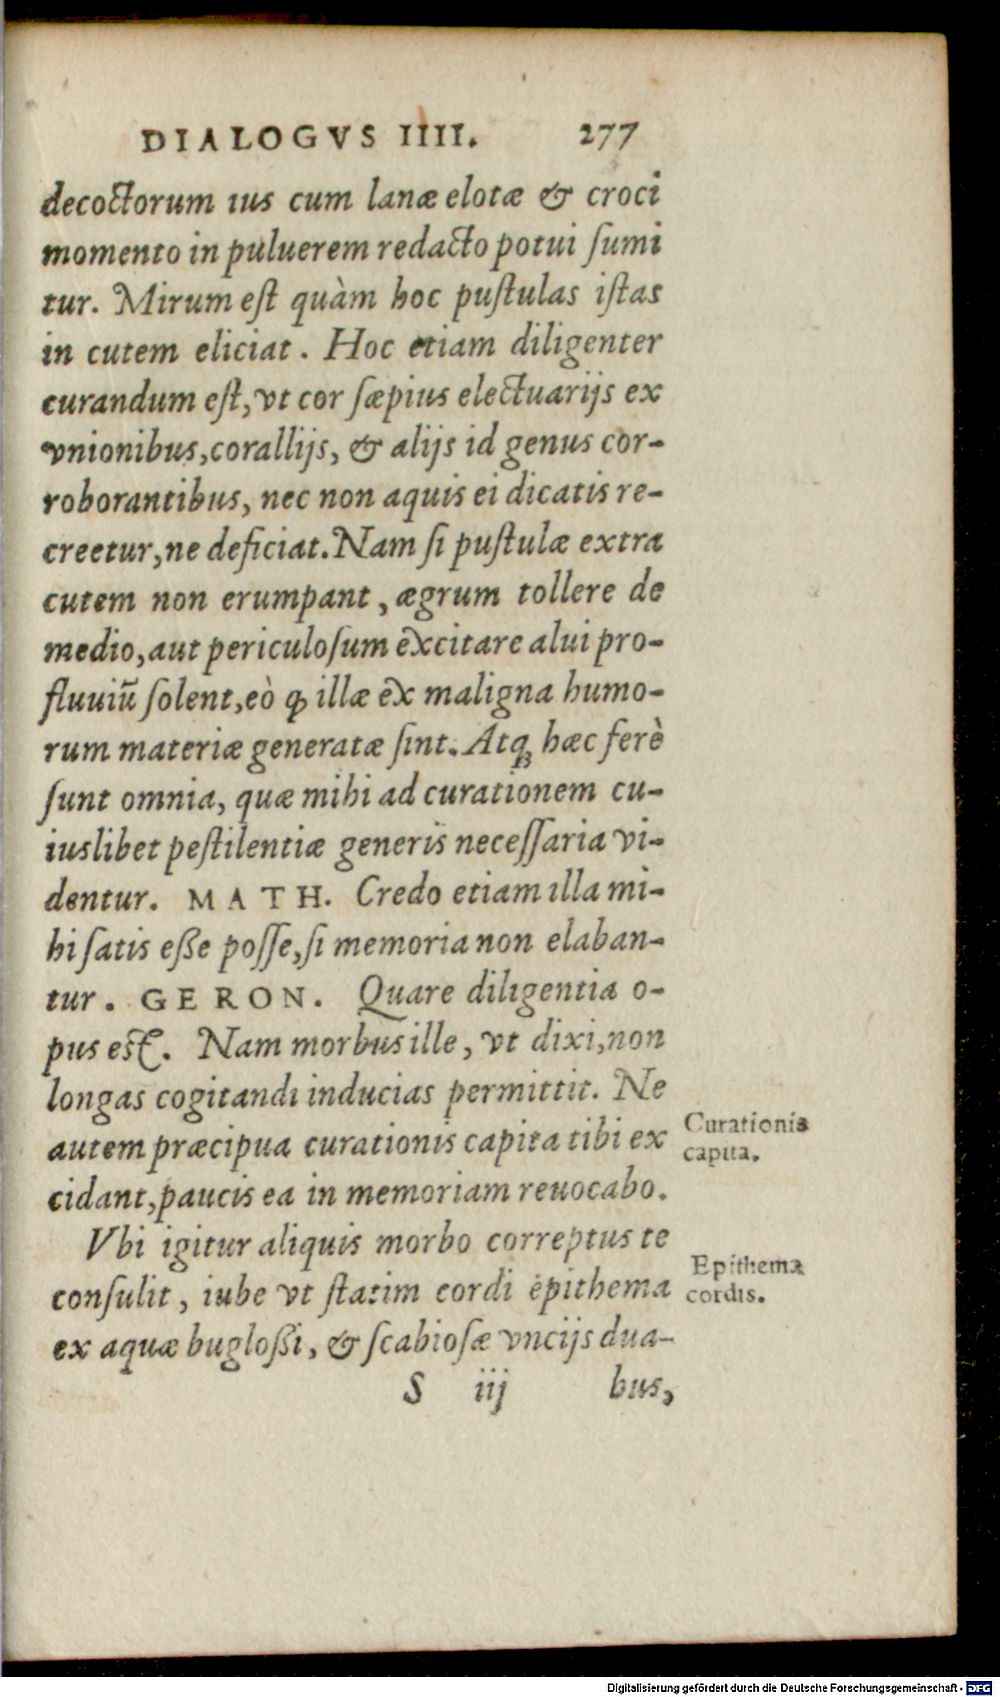 DIALOGVS IIII. 277
decoctorum ius cum lanæ elotæ & croci
momento in puluerem redacto potui ſumi
tur. Mirum eſt quàm hoc puſtulas iſtas
in cutem eliciat. Hoc etiam diligenter
curandum eſt, vt cor ſæpius electuarijs ex
vnionibus, corallijs, & alijs id genus cor-
roborantibus, nec non aquis ei dicatis re-
creetur, ne deficiat. Nam ſi puſtulæ extra
cutem non erumpant, ægrum tollere de
medio, aut periculoſum excitare alui pro-
fluuiū ſolent, eò ꝙ illæ ex maligna humo-
rum materiæ generatæ ſint. Atqꝫ hæc ferè
ſunt omnia, quæ mihi ad curationem cu-
iuslibet peſtilentiæ generis neceſſaria vi-
dentur. MATH. Credo etiam illa mi-
hi ſatis eße poſſe, ſi memoria non elaban-
tur. GERON. Quare diligentia o-
pus est. Nam morbus ille, vt dixi, non
longas cogitandi inducias permittit. Ne
autem præcipua curationis capita tibi ex
cidant, paucis ea in memoriam reuocabo.
Curationis
capita.
Vbi igitur aliquis morbo correptus te
conſulit, iube vt ſtatim cordi epithema
ex aquæ bugloßi, & ſcabioſæ vncijs dua-
Epithema
cordis.
S iij bus,
Digitalisierung gefördert durch die Deutsche Forschungsgemeinschaft - DFG